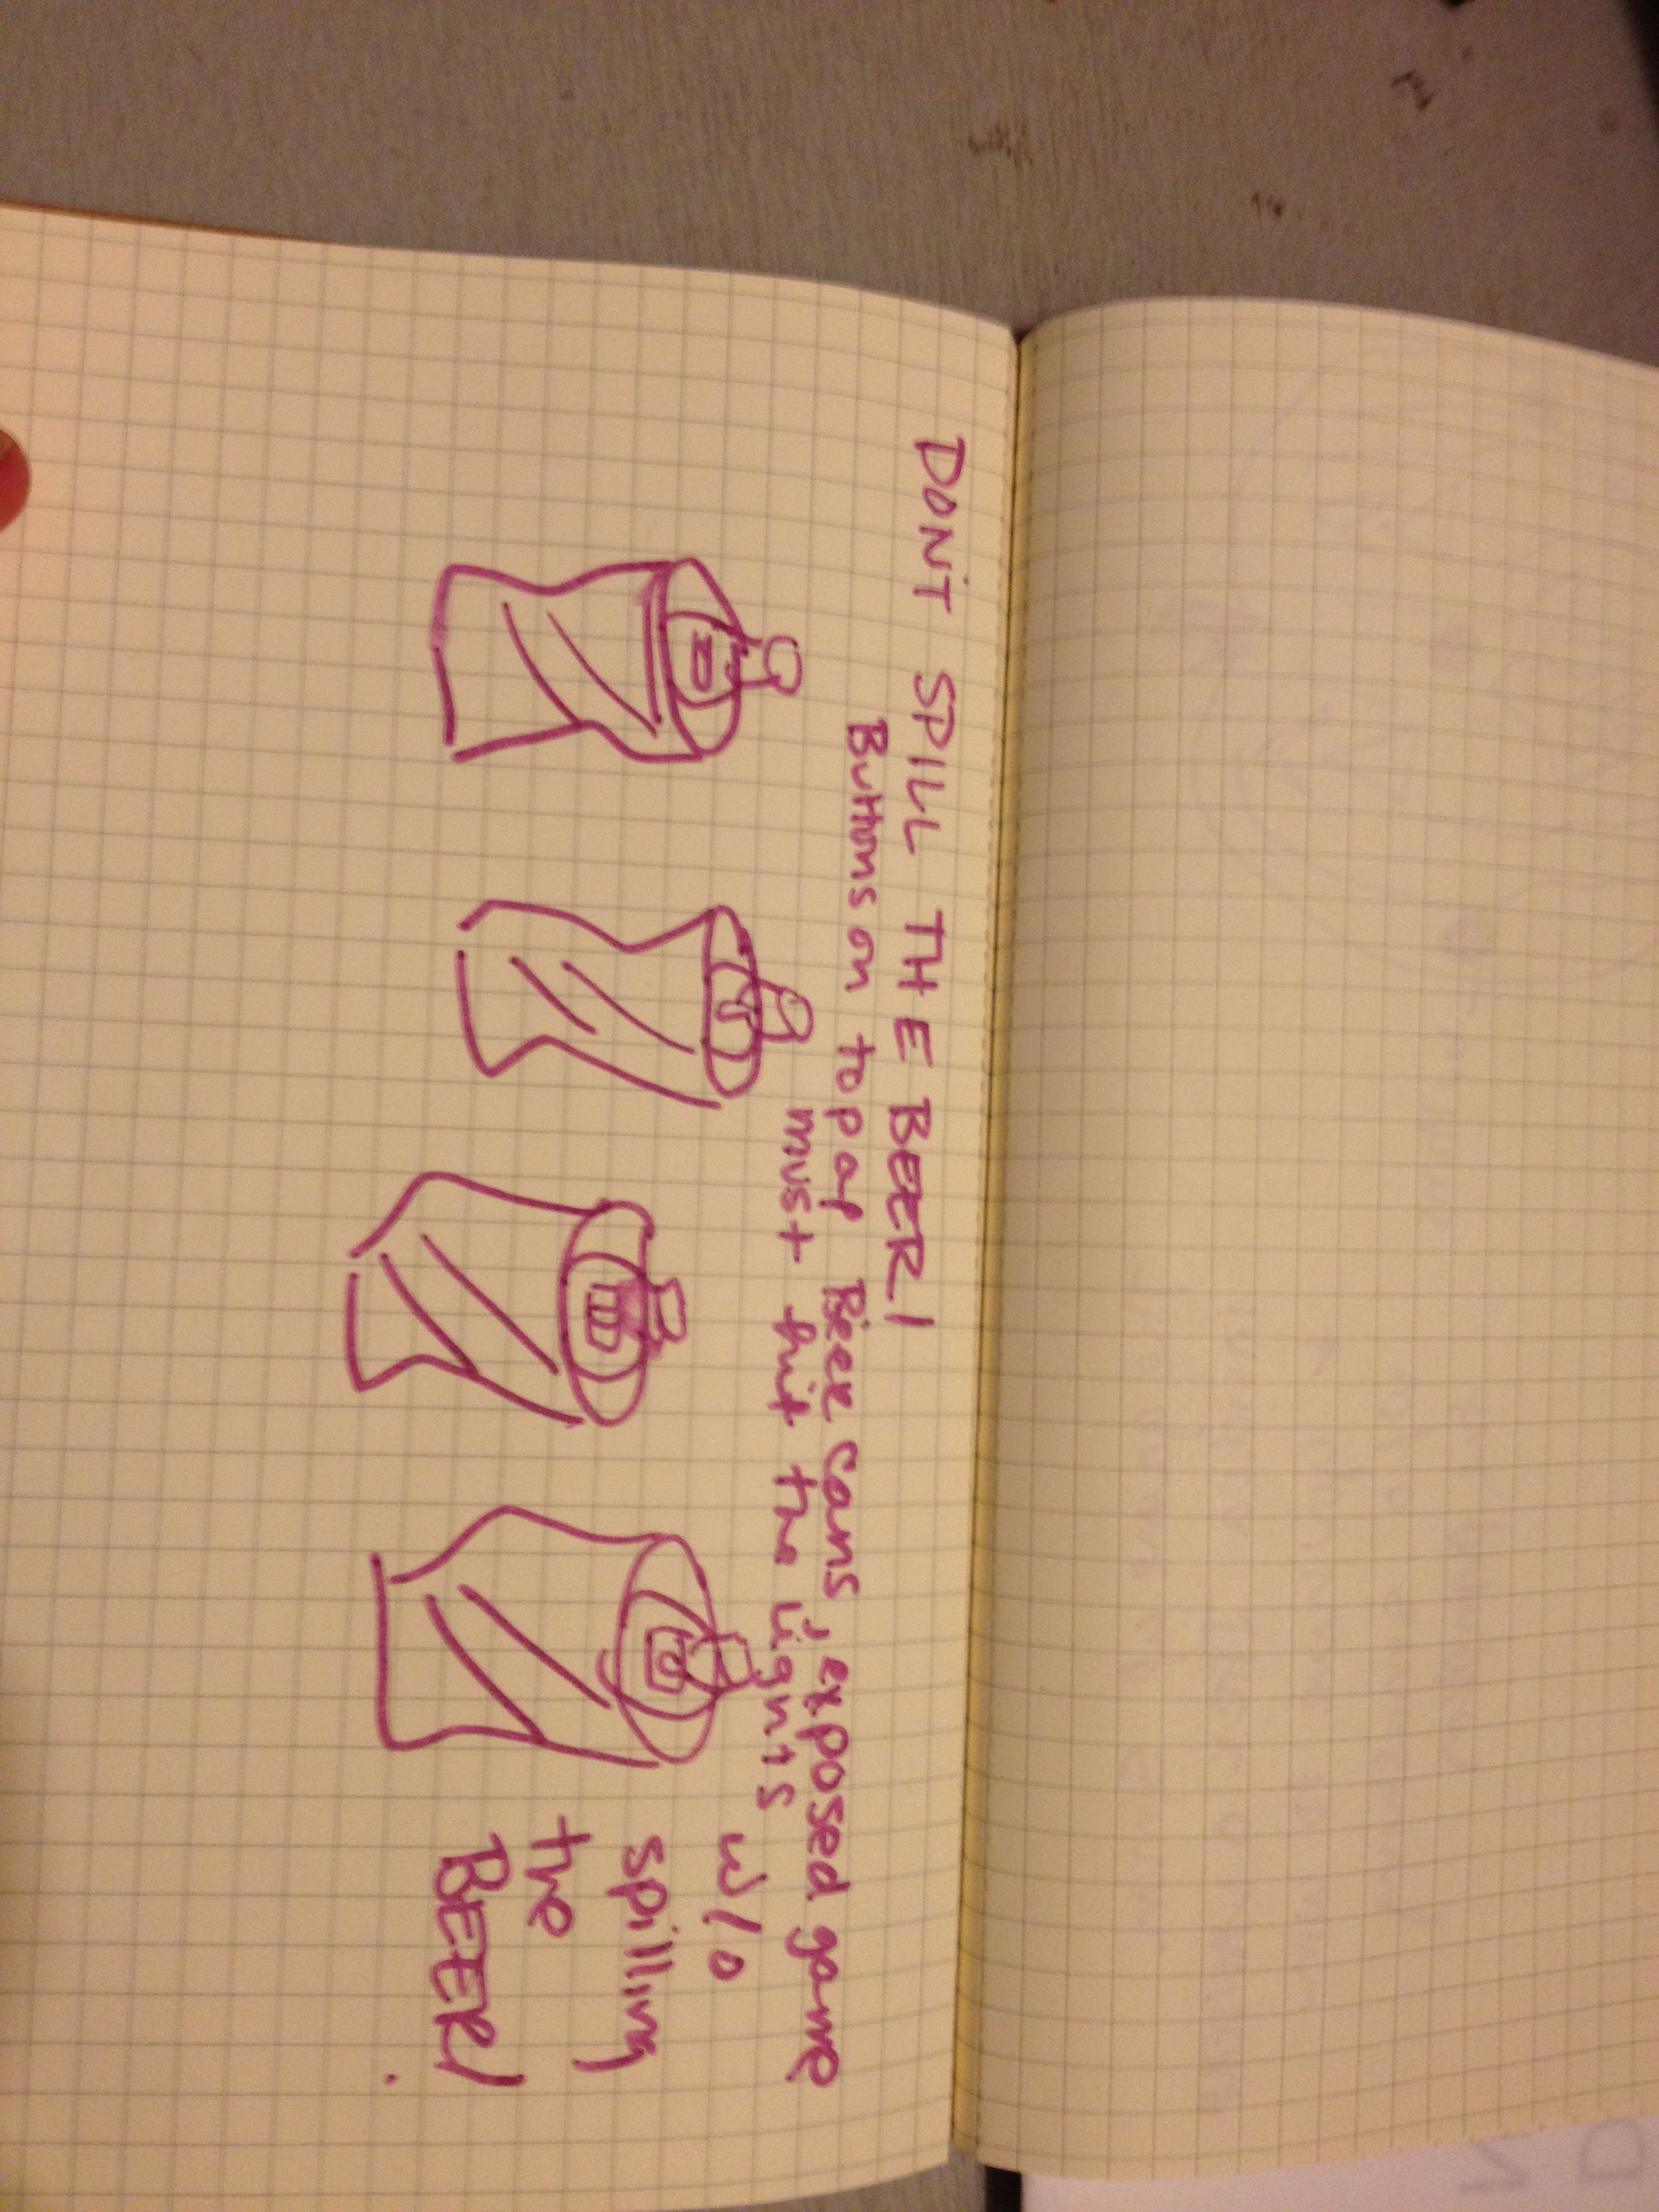 DON'T SPILL THE BEER!
Buttons on top of Beer cans, exposed game
must hit the lights
w/o
spilling
the
BEER!